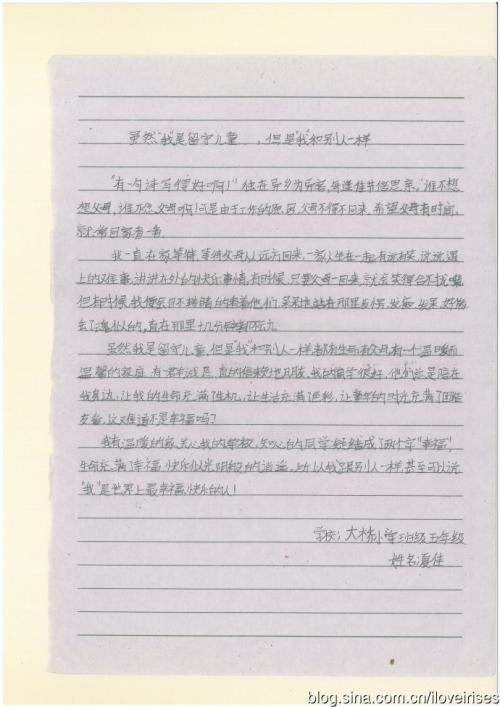 虽然"我"是留守儿童，但是"我"和别人一样
"有一句诗写得好啊！"独在异乡为异客，每逢佳节倍思亲。"谁不想
想父母，谁不念父母啊！可是由于工作的原因，父母不得不回来，希望父母有时间，
就常回家看看。
我一直在家等待，等待父母从远方回来，一家人坐在一起有说有笑，说说遇
上的难事，讲讲在外的快乐事情，有时候，只要父母一回来，就会笑得合不拢嘴
但有时候，我便会目不转睛的看着他们，呆呆地站在那里发愣、发
去了魂似的，直在那里十几分钟都不动。
虽然我是留守儿童，但是"我"和别人一样都有生命有父母，有一个温暖而
温馨的家庭，有一群
我身边，让我的生命充满生机，让生活充满色彩，让童年的时光充满了
友爱，这难道不是幸福吗？
我有温暖的家，关心我的学校，知心的同学 结成了两个字"幸福"，
生命充满幸福、快乐 ，所以"我"跟别人一样，甚至可以说
"我"是世界上最幸福、快乐的人！
学校：大桥小学班级五年级
姓名：夏佳
blog.sina.com.cn/iloveirises